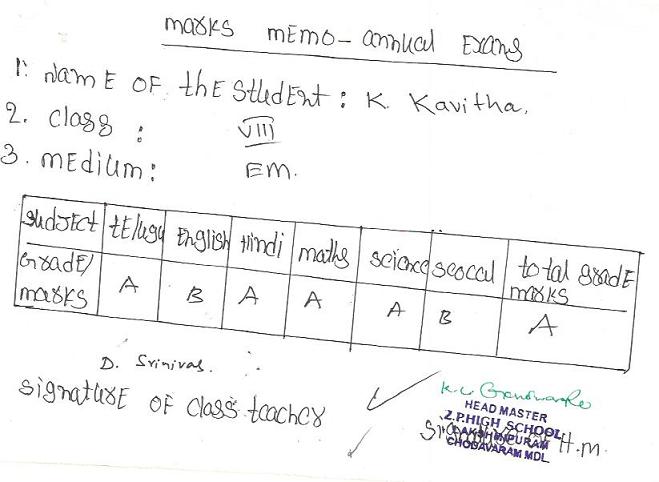 marks mEmo - annual Exams
1. NamE OF thE StudEnt : K. Kavitha.
2. Class : VIII
3. mEdium : EM.
SubJEct tElugu English Hindi maths science seoccul total gradE marks
GradE/ marks A B A A A B A
D. Srinivas.
signaturE OF Class teacher
HEAD MASTER
Z.P.HIGH SCHOOL
LAKSHMIPURAM
CHODAVARAM MDL
H.M.